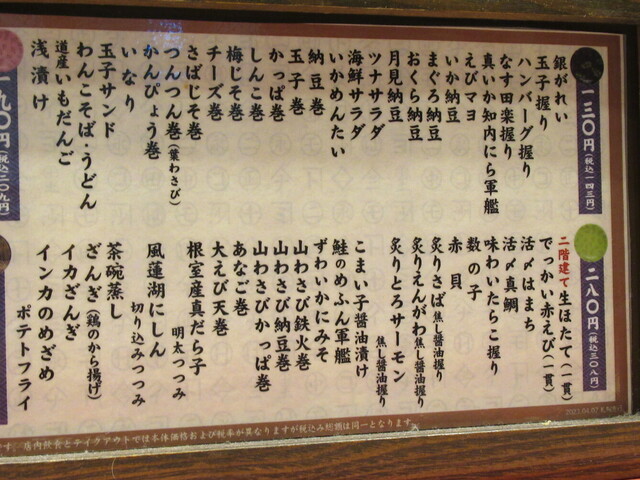 一三〇円(税込一四三円)
銀がれい
玉子握り
ハンバーグ握り
なす田楽握り
真いか知内にら軍艦
えびマヨ
いか納豆
まぐろ納豆
おくら納豆
月見納豆
ツナサラダ
海鮮サラダ
いかめんたい
納豆巻
玉子巻
かっぱ巻
しんこ巻
梅じそ巻
チーズ巻
さばじそ巻
つんつん巻(葉わさび)
かんぴょう巻
いなり
玉子サンド
わんこそば・うどん
道産いもだんご
浅漬け
一九〇円(税込二〇九円)
二八〇円(税込三〇八円)
二階建て生ほたて(一貫)
でっかい赤えび(一貫)
活〆はまち
活〆真鯛
味わいたらこ握り
数の子
赤貝
炙りさば焦し醤油握り
炙りえんがわ焦し醤油握り
炙りとろサーモン
焦し醤油握り
こまい子醤油漬け
鮭のめふん軍艦
ずわいかにみそ
山わさび鉄火巻
山わさび納豆巻
山わさびかっぱ巻
あなご巻
大えび天巻
根室産真だら子
明太つつみ
風蓮湖にしん
切り込みつつみ
茶碗蒸し
ざんぎ(鶏のから揚げ)
イカざんぎ
インカのめざめ
ポテトフライ
です。店内飲食とテイクアウトでは本体価格および税率が異なりますが税込み総額は同一となります。